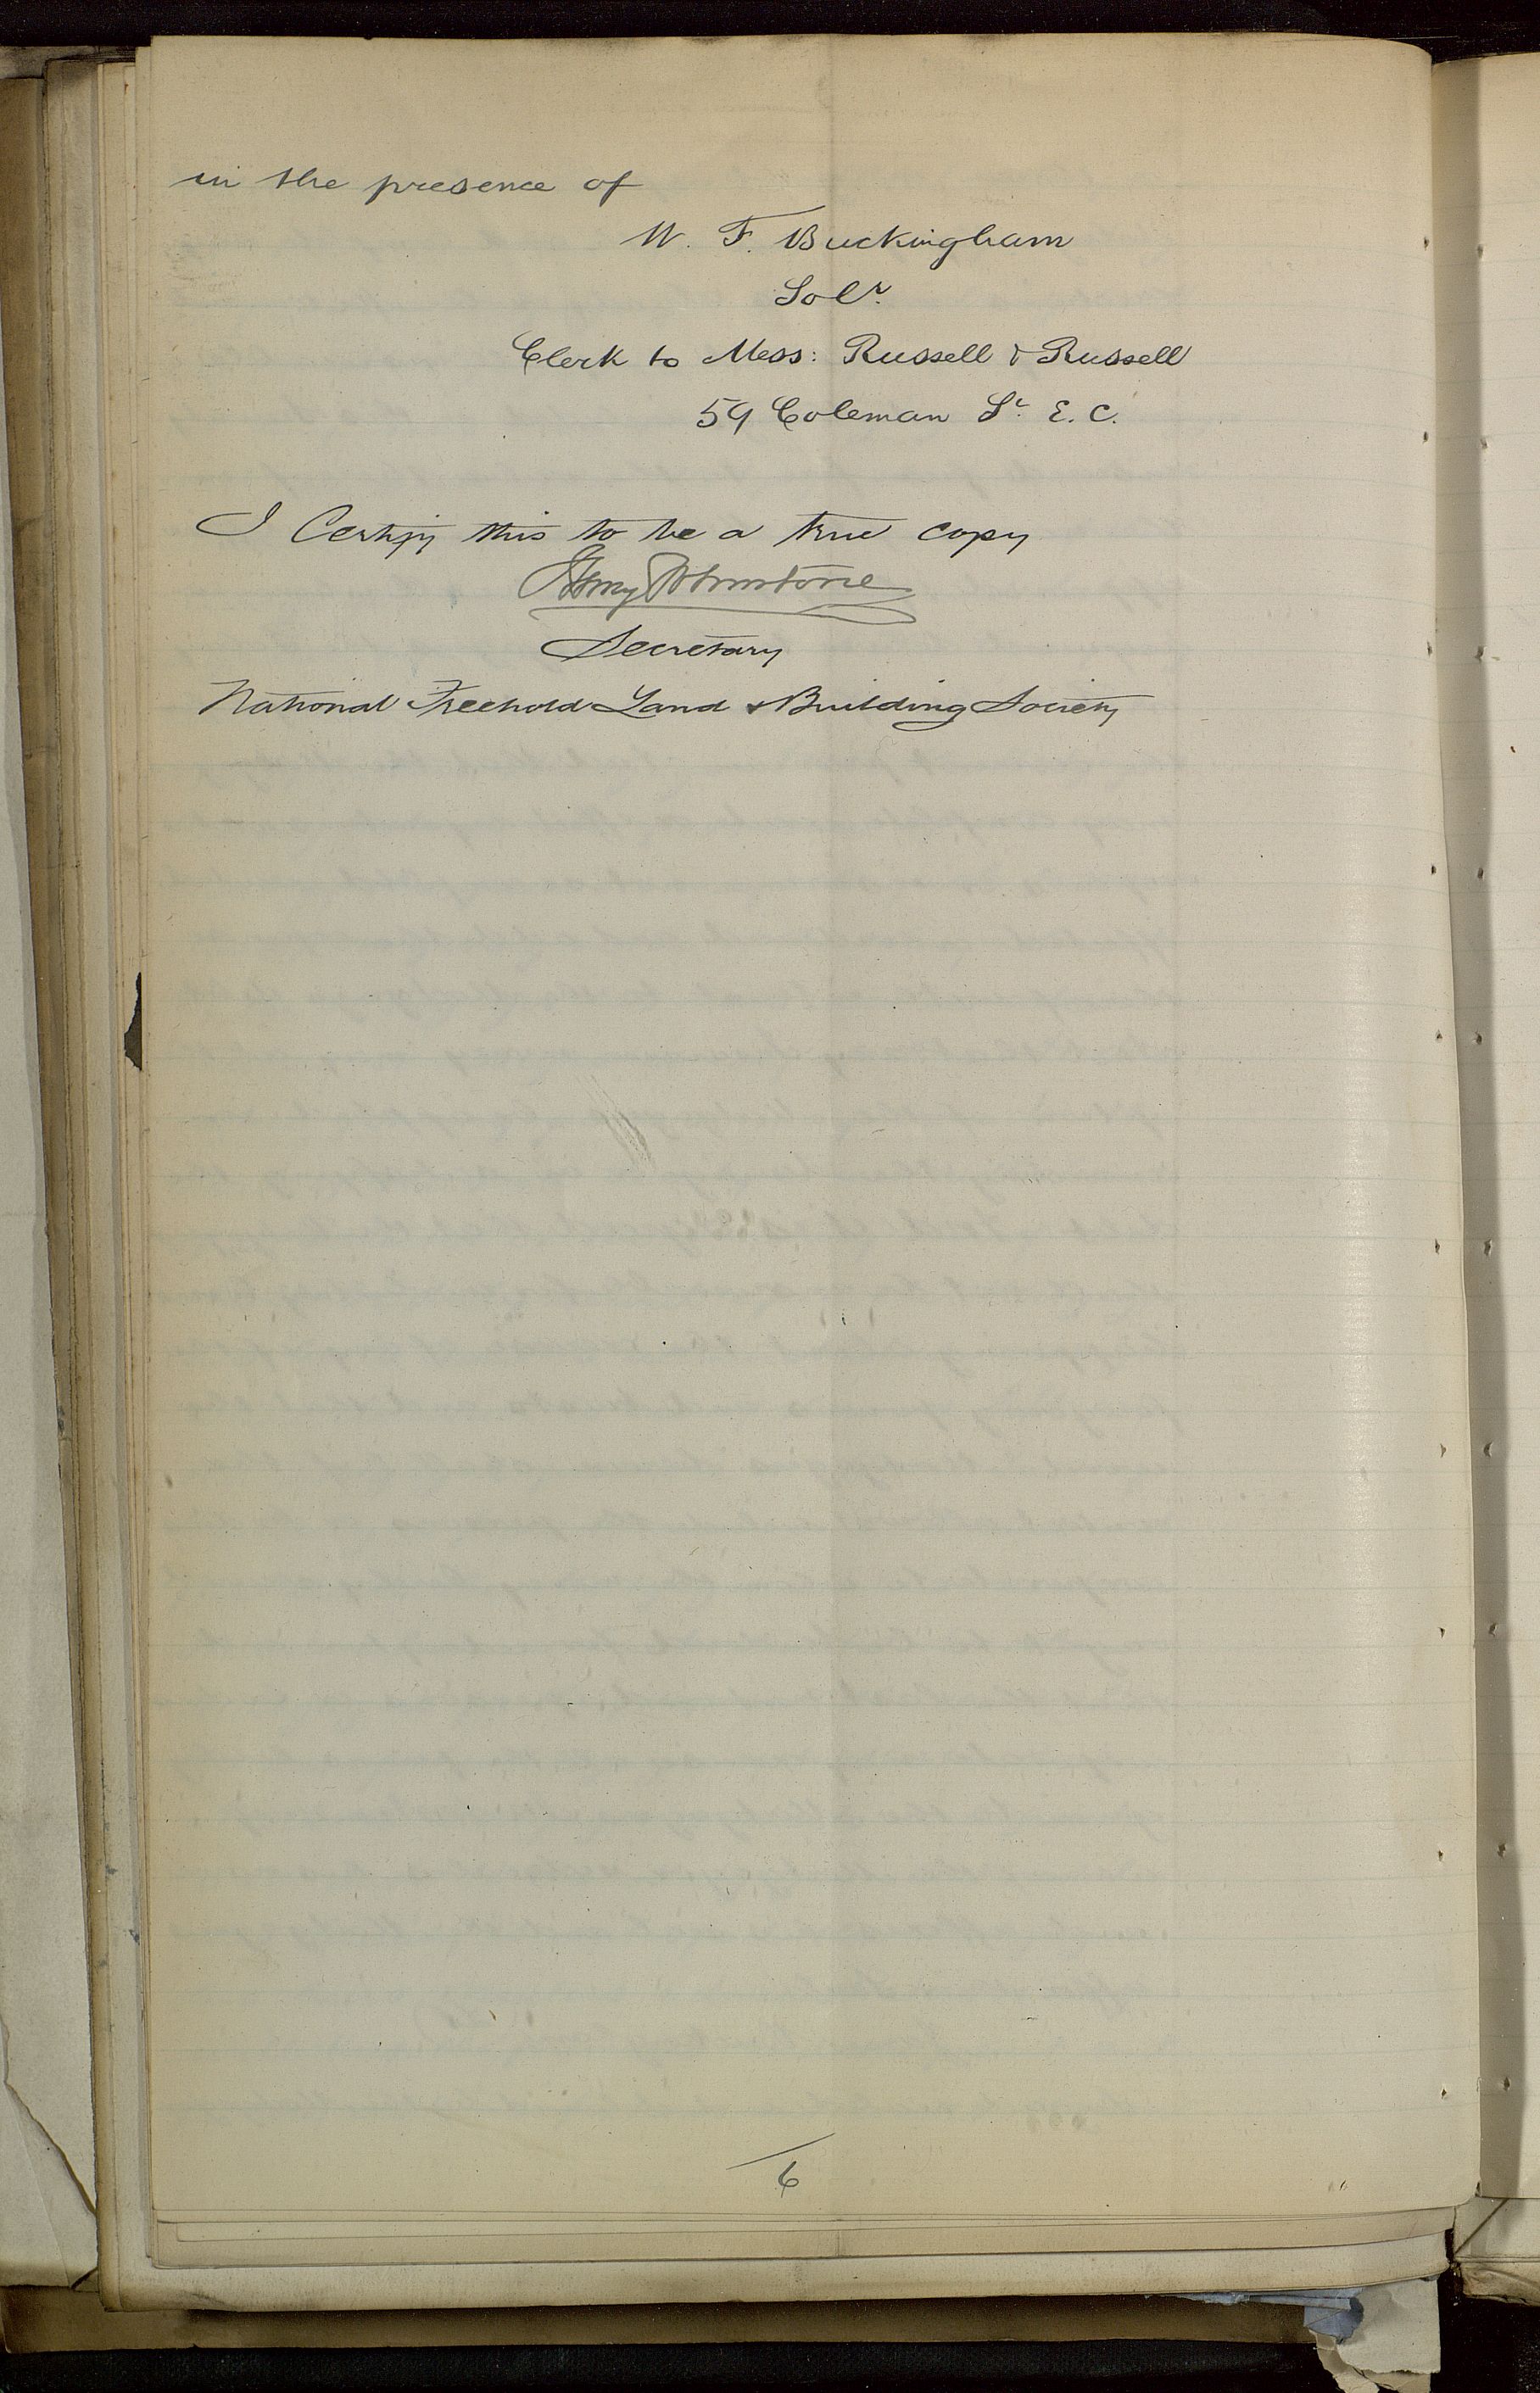 in the presence of
W. F. Buckingham
Solr.
Clerk to Mess: Russell & Russell
59 Coleman St. E. C.
I Certify this to be a true copy
Secretary
National Freehold Land & Building Society
6